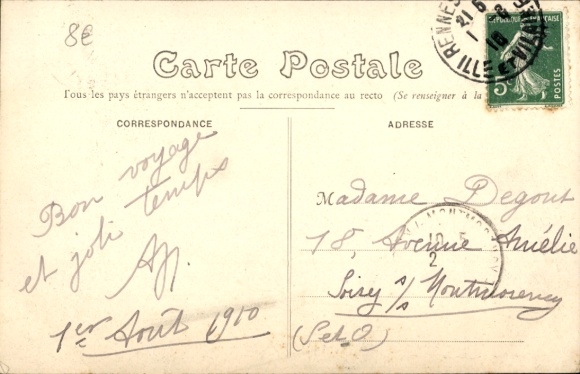 8€
Carte Postale
Tous les pays étrangers n'acceptent pas la correspondance au recto (Se renseigner à la
CORRESPONDANCE
ADRESSE
Bon voyage
et joli temps
1er Août 1910
Madame Degout
18, Avenue Amélie
Soisy s/s Montmorency
(S et O)
RENNES
21 5
ILLE ET VILAINE
MONTMORENCY
POSTES
5